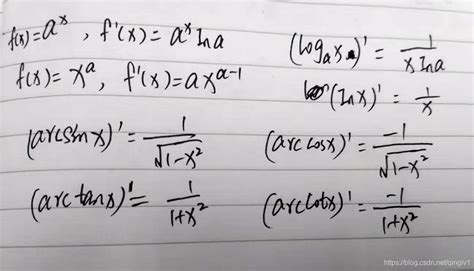 f(x)=aˣ, f'(x)=aˣ ln a
(logₐx)' = 1/(x ln a)
f(x)=xᵃ, f'(x)=axᵃ⁻¹
(ln x)' = 1/x
(arcsin x)' = 1/√(1-x²)
(arccos x)' = -1/√(1-x²)
(arctan x)' = 1/(1+x²)
(arccot x)' = -1/(1+x²)
https://blog.csdn.net/qinglv1